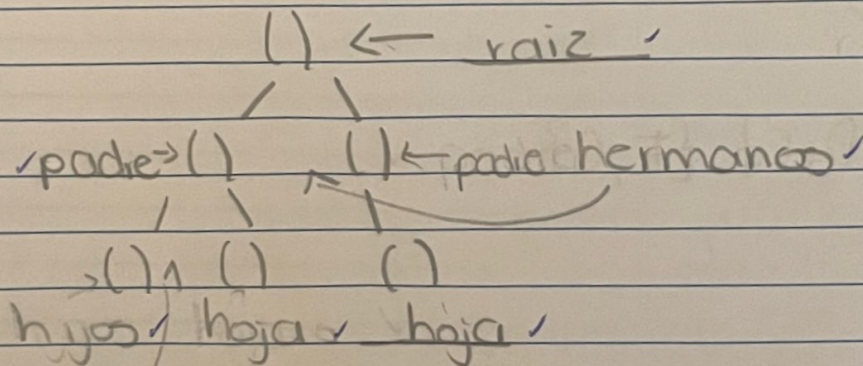 () ← raiz
padre→() ()←padre hermanos
→() () ()
hijos hoja hoja